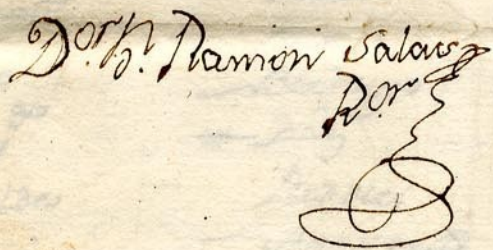 D.or h. Ramon Salas
R.or